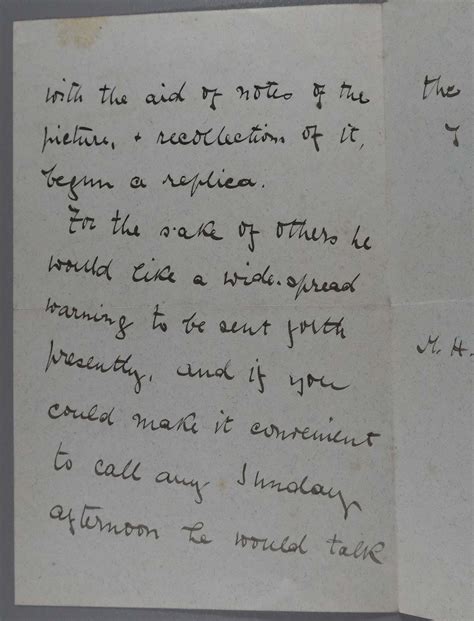 with the aid of notes of the
picture, + recollections of it,
begun a replica.
For the sake of others he
would like a wide-spread
warning to be sent forth
presently, and if you
could make it convenient
to call any Sunday,
afternoon he would talk
the
M. H.